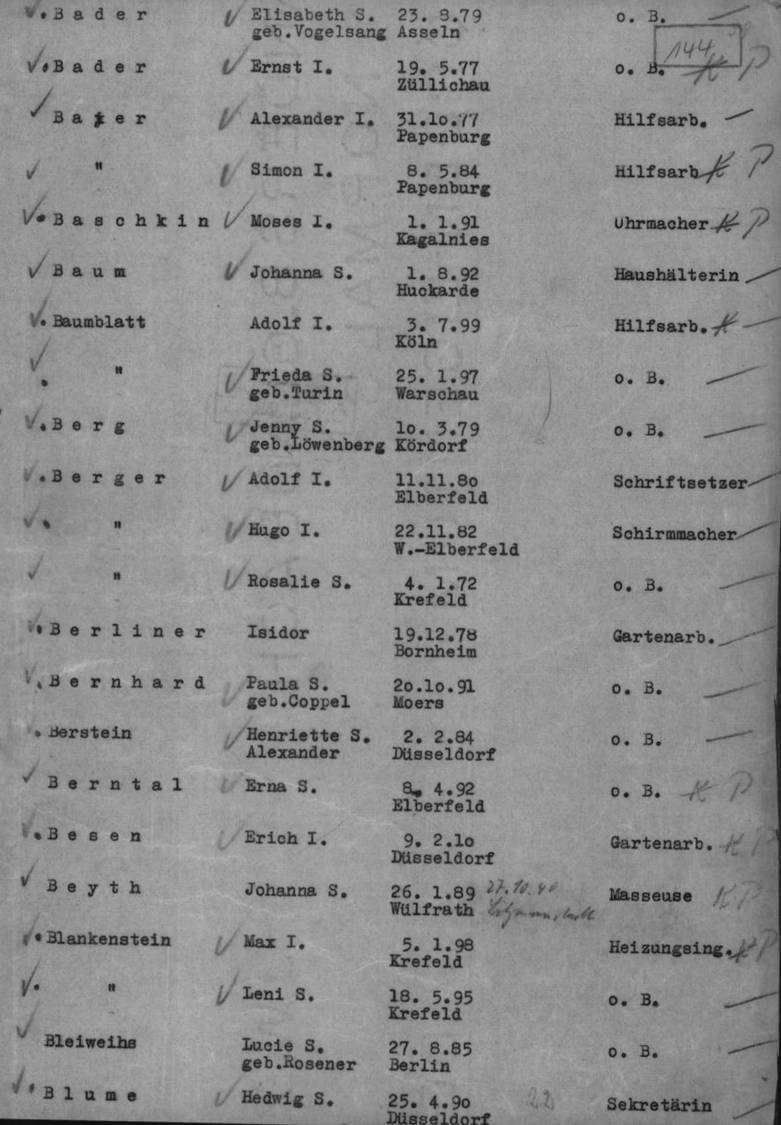 Bader Elisabeth S. 23. 8.79 o. B.
geb.Vogelsang Asseln
144
Bader Ernst I. 19. 5.77 o. B. K P
Züllichau
Alexander I. 31.10.77 Hilfsarb.
Papenburg
" Simon I. 8. 5.84 Hilfsarb K P
Papenburg
Baschkin Moses I. 1. 1.91 Uhrmacher K P
Kagalnies
Baum Johanna S. 1. 8.92 Haushälterin
Huckarde
Baumblatt Adolf I. 3. 7.99 Hilfsarb. K
Köln
" Frieda S. 25. 1.97 o. B.
geb.Turin Warschau
Berg Jenny S. 10. 3.79 o. B.
geb.Löwenberg Kördorf
Berger Adolf I. 11.11.80 Schriftsetzer
Elberfeld
" Hugo I. 22.11.82 Schirmmacher
W.-Elberfeld
" Rosalie S. 4. 1.72 o. B.
Krefeld
Berliner Isidor 19.12.78 Gartenarb.
Bornheim
Bernhard Paula S. 20.10.91 o. B.
geb.Coppel Moers
Berstein Henriette S. 2. 2.84 o. B.
Alexander Düsseldorf
Berntal Erna S. 8. 4.92 o. B. K P
Elberfeld
Besen Erich I. 9. 2.10 Gartenarb. K P
Düsseldorf
Beyth Johanna S. 26. 1.89 27.10.40 Masseuse K P
Wülfrath
Blankenstein Max I. 5. 1.98 Heizungsing. K P
Krefeld
" Leni S. 18. 5.95 o. B.
Krefeld
Bleiweihs Lucie S. 27. 8.85 o. B.
geb.Rosener Berlin
Blume Hedwig S. 25. 4.90 22 Sekretärin
Düsseldorf